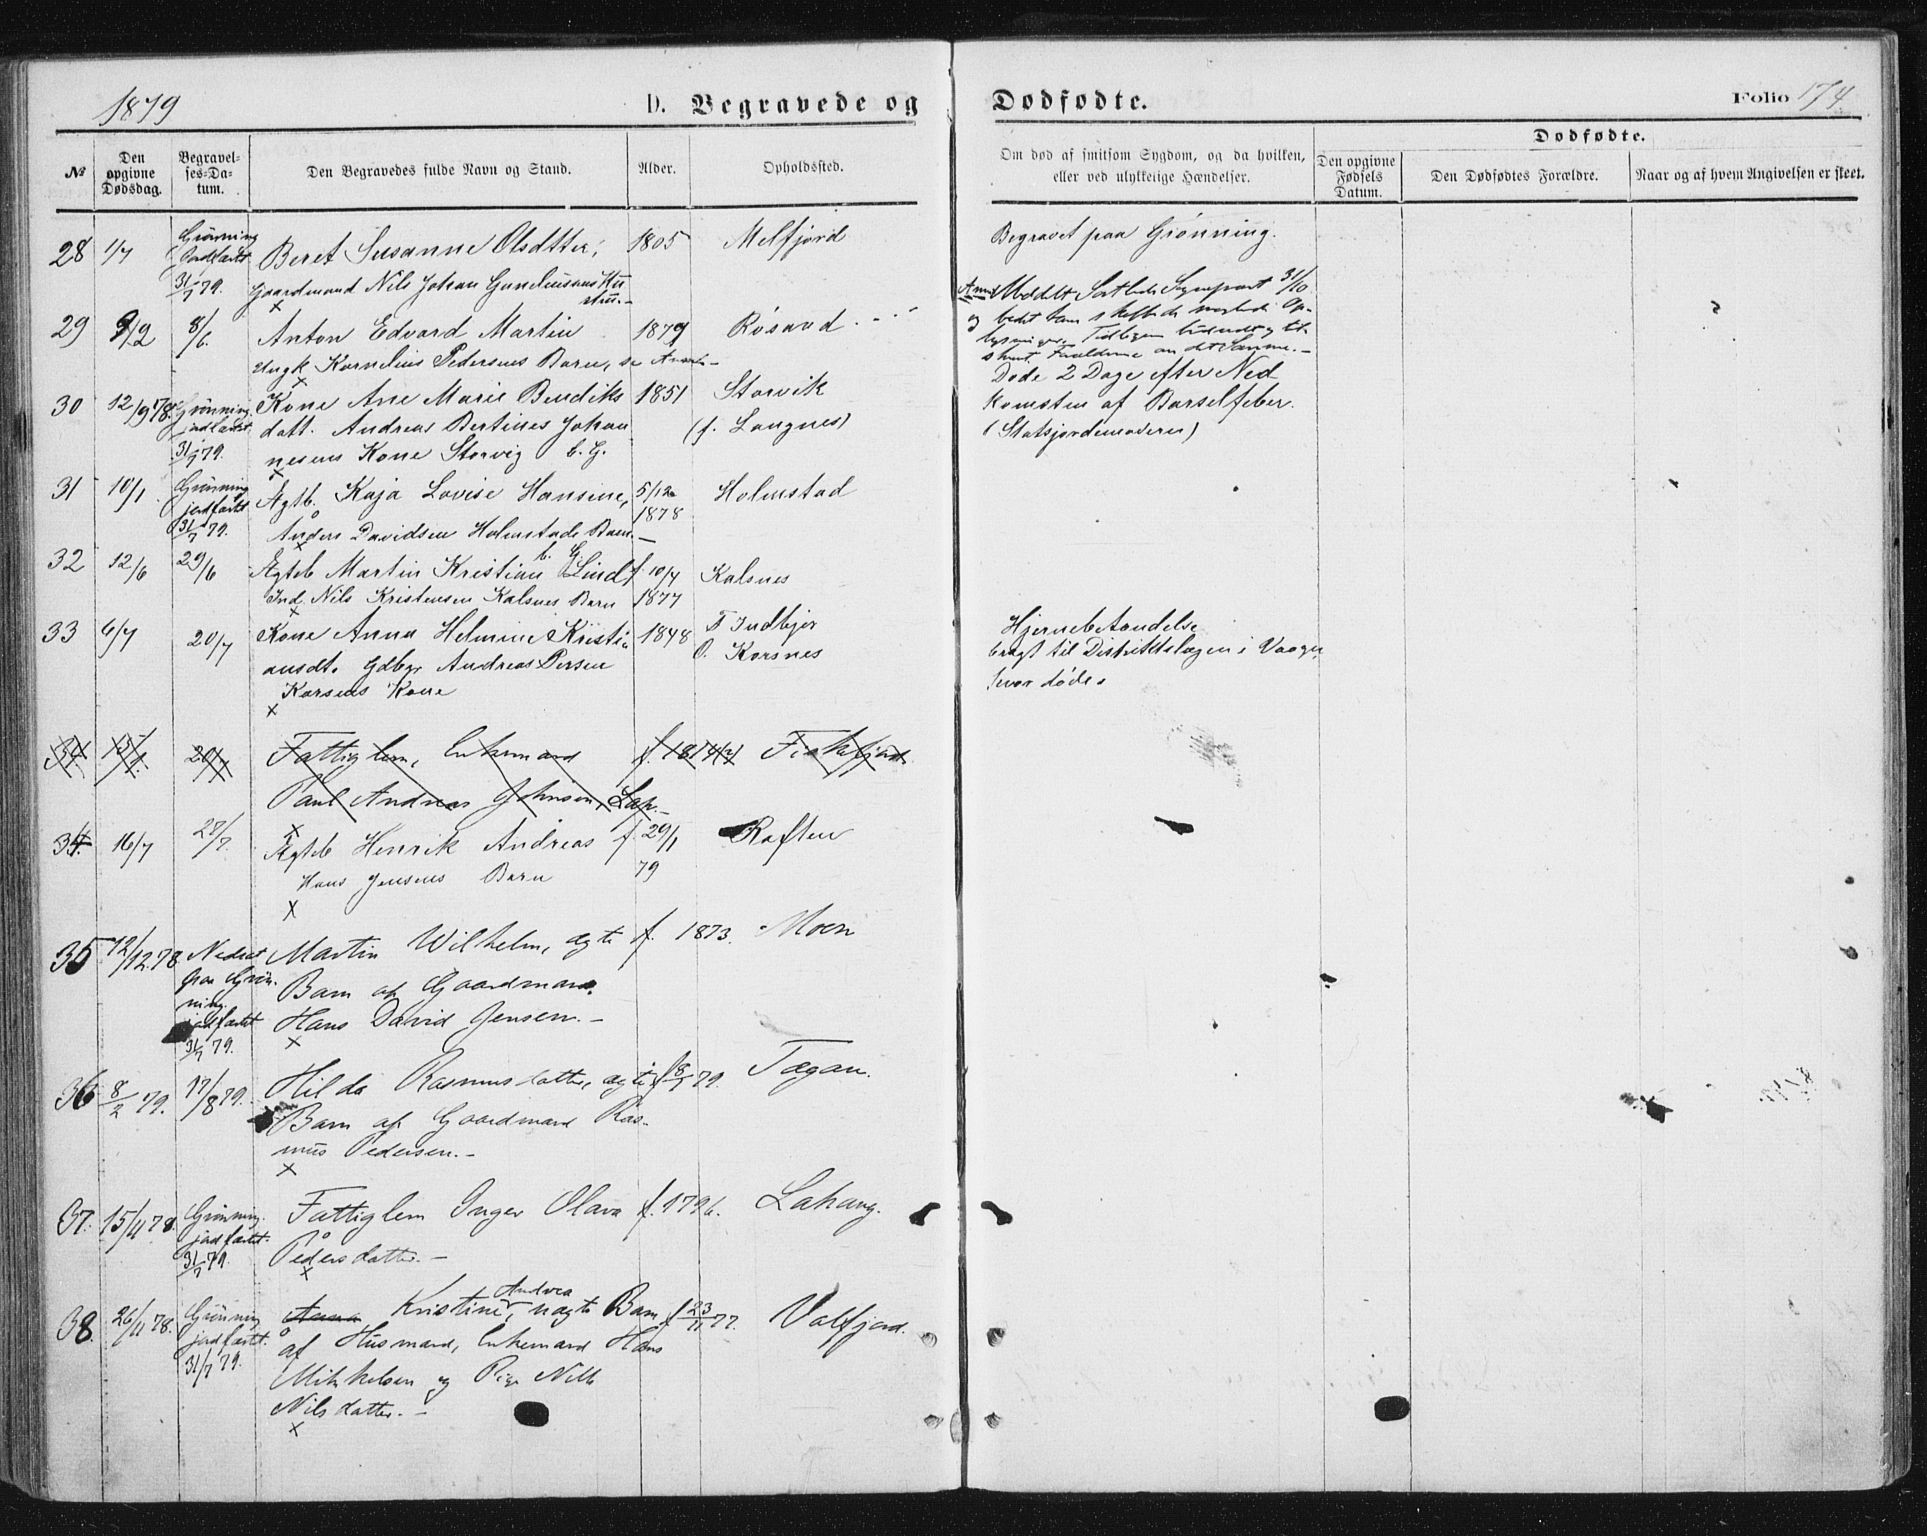 1879
D. Begravede og Dødfødte.
Folio 174
№
Den opgivne Dødsdag.
Begravelses-Datum.
Den Begravedes fulde Navn og Stand.
Alder.
Opholdssted.
Om død af smitsom Sygdom, og da hvilken, eller ved ulykkelige Hændelser.
Dødfødte.
Den opgivne Fødsels Datum.
Den Dødfødtes Forældre.
Naar og af hvem Angivelsen er skeet.
28 1/7 Grönning Beret Susanne Olsdtter, 1805 Melfjord Begravet paa Grönning.
jordfæstet
31/7 79. Gaardmand Nils Johan
29 8/6 Anton Edvard Martin 1879 Røsand
Kornelius Pedersens Barn, se
30 12/9 78. Grönning Kone Ane Marie Bendiks 1851 Storvik Døde 2 Dage efter Ned
jordfæstet datt. Andreas Bertines Johan (f. Langnes) komsten af Barselfeber.
31/7 79. nesens Kone Storvig b. G.
31 10/1 Grönning Ægtb. Kaja Lovise Hansine, 5/12 Holmstad
jordfæstet 1878
31/7 79. Anders Davidsen Holmstads Barn
32 12/6 29/6 Ægteb Martin Kristian Lind f. 10/7 Kalsnes
Ind. Nils Kristensen Kalsnes Barn 1877
33 6/7 20/7 Kone Anna Helmine Kristi 1848 F Indbjer Hjernebetændelse
ansdt. Gdbgr Andreas Persen O. Korsnes bragt til Distriktslægen i Vaagen
Korsnes Kone hvor døde
34 20/7 Fattiglem, Enkemand
Paul Andreas Johnsen, Lap.
34. 16/7 27/7. Ægteb Henrik Andreas f. 29/1 Raften
Hans Jensens Barn 79
35 12/12.78 Nedsat Martin Wilhelm, ægte f. 1873. Moen
paa Grön- Barn af Gaardmand
ning.
jordfæstet Hans David Jensen. –
31/7 79.
36 8/2 79. 17/8 79. Hilda Rasmusdatter, ægte f 8/1 79. Tægan.
Barn af Gaardmand Ras-
mus Pedersen. –
37. 15/11 78. Grönning. Fattiglem Inger Olava f. 1796. Lahaug.
jordfæstet.
31/7 79. Pedersdatter. –
Andrea
38. 26/11 78. Grönning Anna Kristine, uægte Barn f. 23/11 77. Valfjord.
jordfæstet. af Husmand, Enkemand Hans
31/7 79. Mikkelsen og Pige Nille
Nilsdatter. –